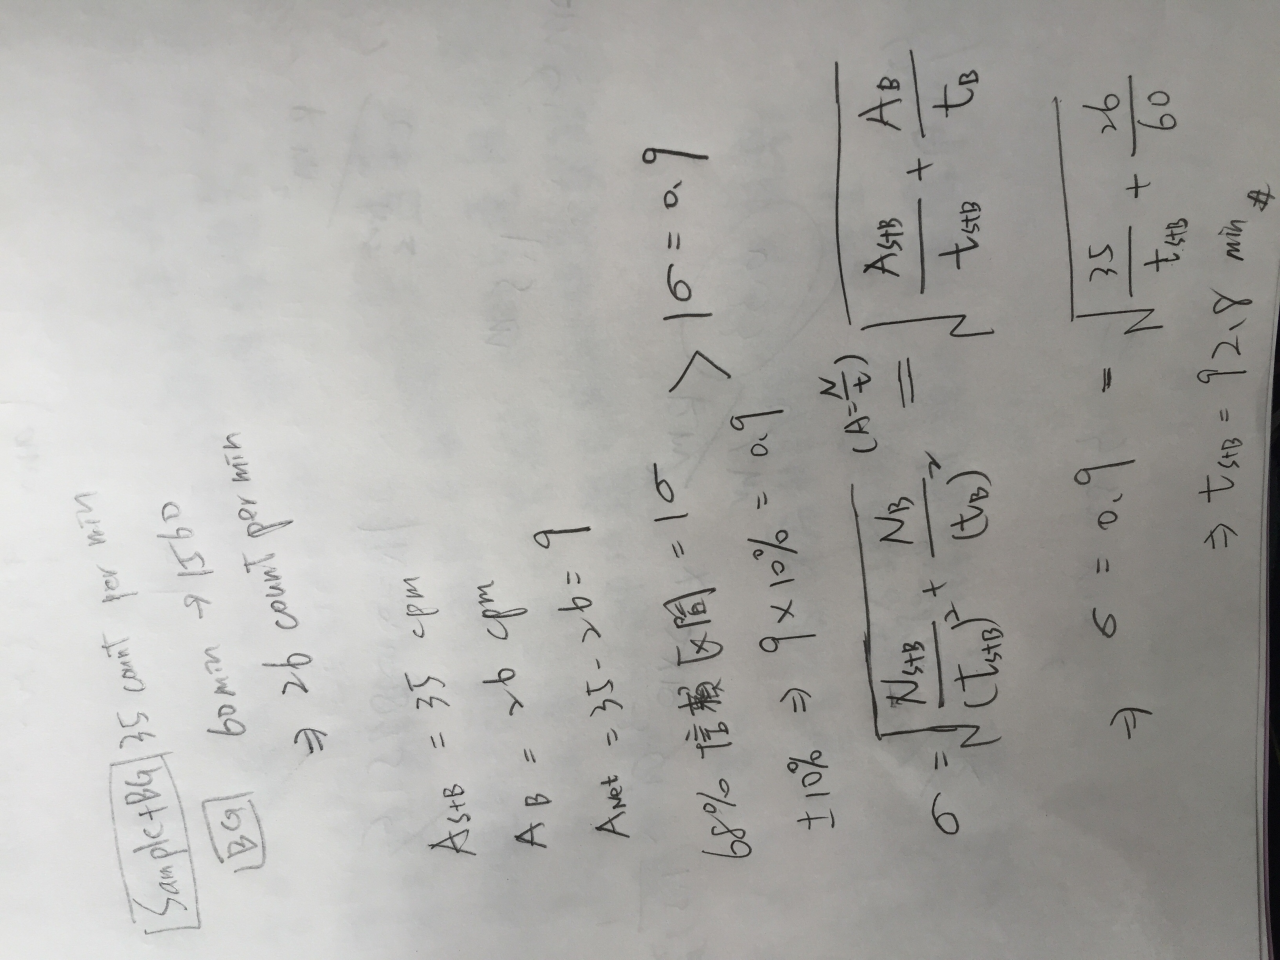 Sample+BG 35 count per min
BG 60min → 1560
⇒ 26 count per min
A_{S+B} = 35 cpm
A_B = 26 cpm
A_{Net} = 35-26 = 9
68% 信賴区間 = 1σ > 1σ = 0.9
±10% ⇒ 9×10% = 0.9
σ = √(N_{S+B}/(t_{S+B})² + N_B/(t_B)²) (A=N/t) = √(A_{S+B}/t_{S+B} + A_B/t_B)
⇒ σ = 0.9 = √(35/t_{S+B} + 26/60)
⇒ t_{S+B} = 92.8 min #